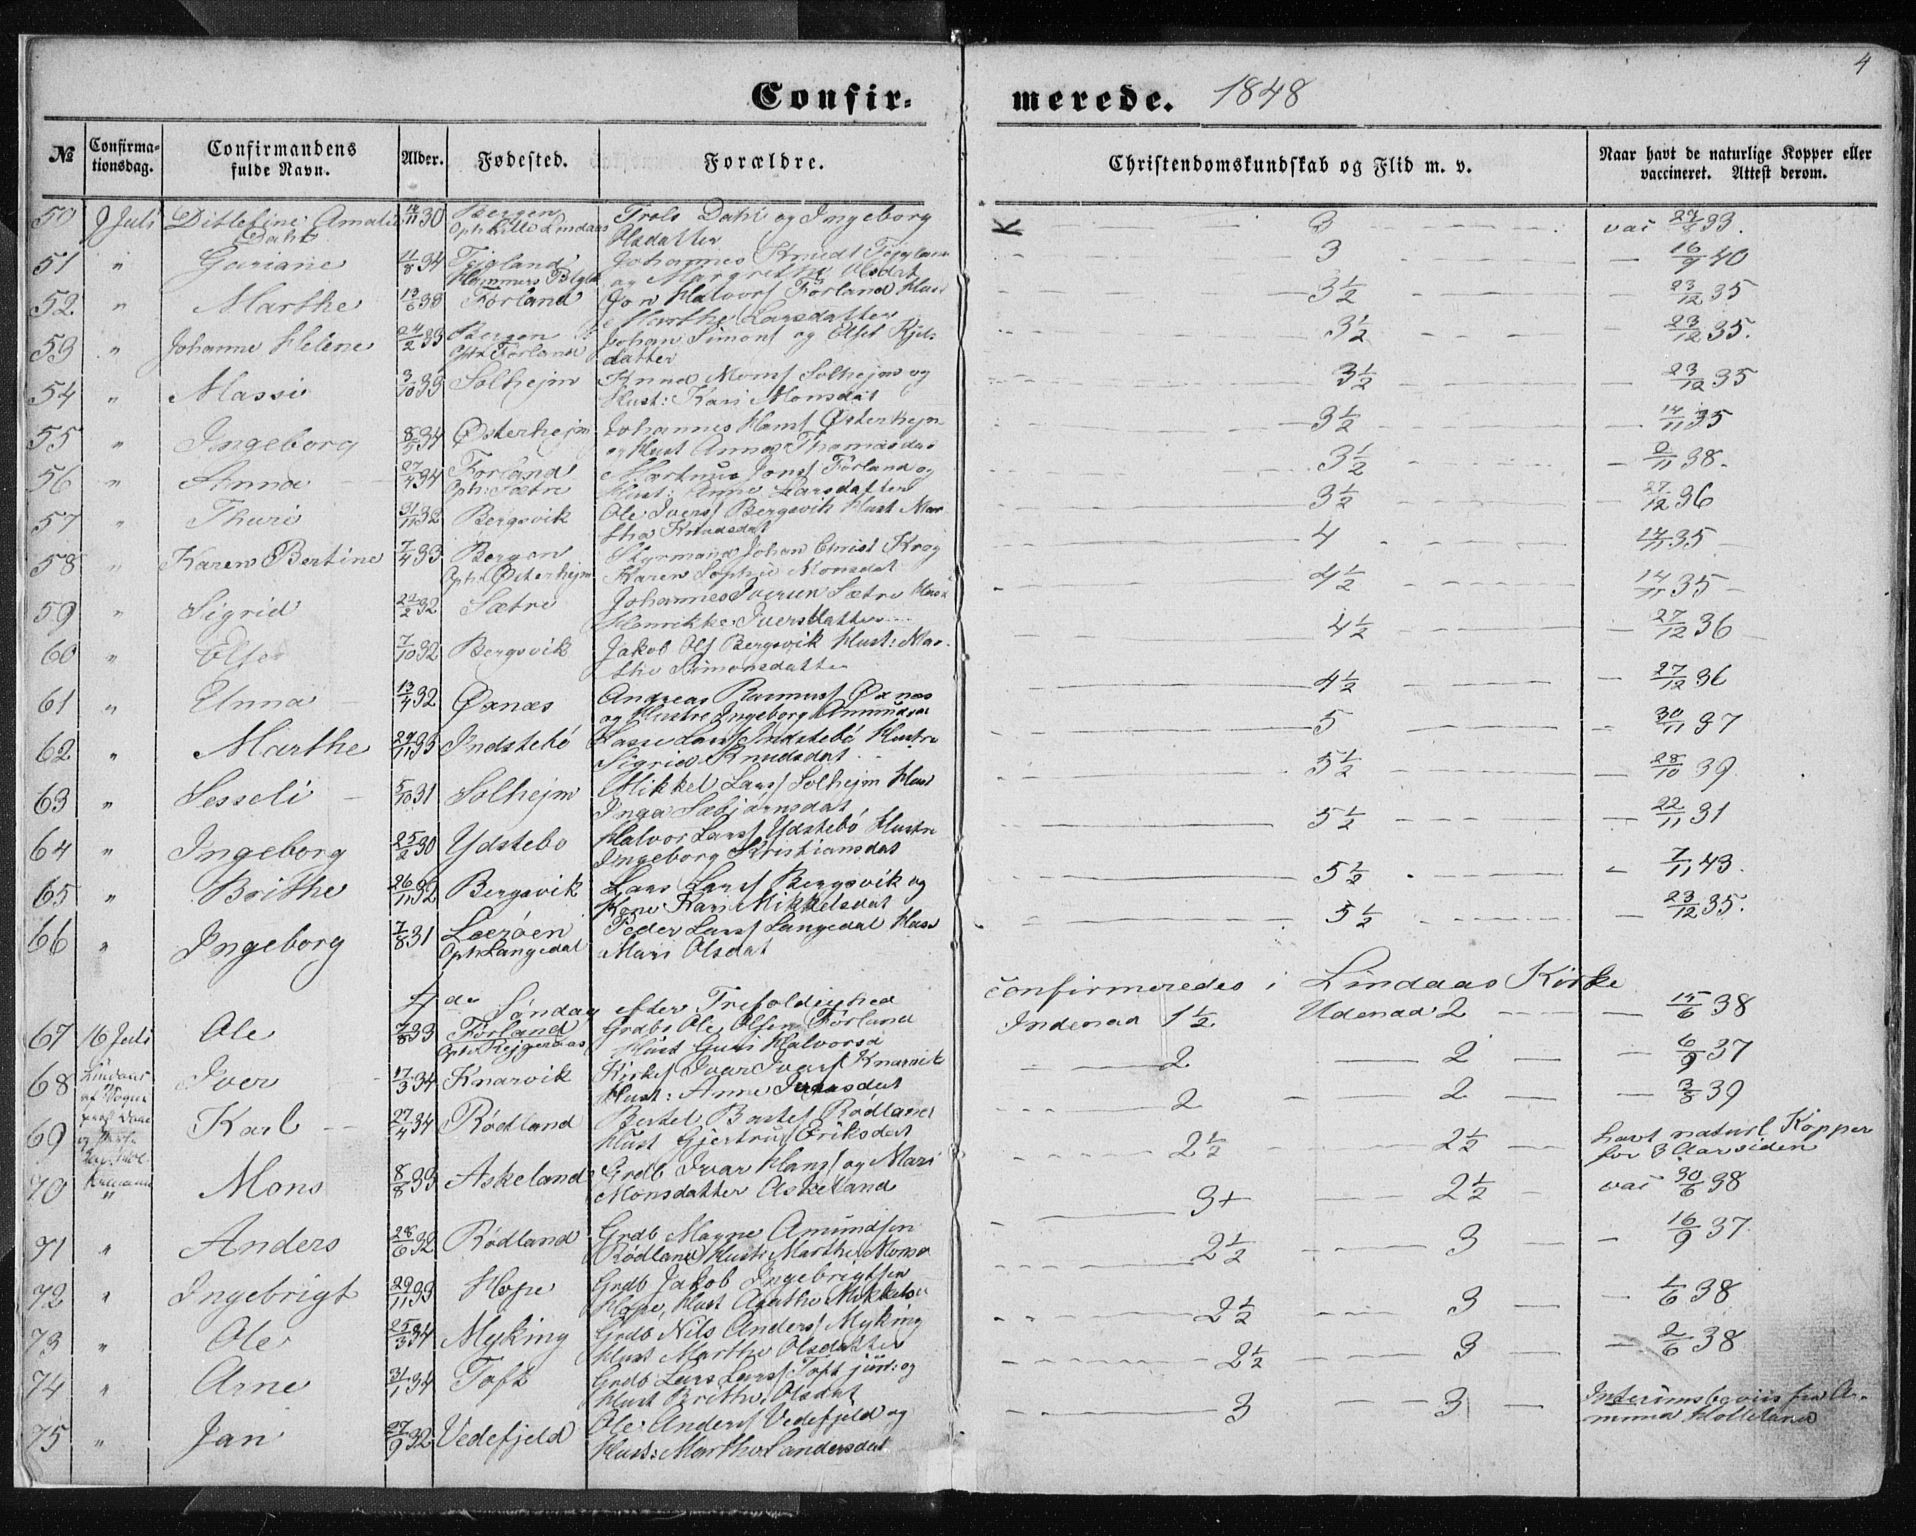 4
Confir- merede. 1848
No Confirma- tionsdag. Confirmandens fulde Navn. Alder. Fødested. Forældre. Christendomskundskab og Flid m. v. Naar havt de naturlige Kopper eller vaccineret. Attest derom.
50 9 Juli Ditlefine Amalie 14/11 30 Bergen Trols Dahl og Ingeborg K 3 vac 27/6 33.
Dahl Oph Lille Lindaas Olsdatter
51 " Gariane 11/8 34 Fejeland Johannes Knuds Fejeland 3 — 16/9 40
Hammers Pgld og Margrethe Olsdat
52 " Marthe 13/6 33 Førland Jon Halvors Førland Hust 3½ — 23/12 35
Marthe Larsdatter
53 " Johanne Helene 24/2 33 Bergen Johan Simons og Elset Kjels- 3½ — 23/12 35.
Oph Førland datter
54 " Massi 3/10 33 Solhejm Knud Mons Solhejm og 3½ — 23/12 35
Hust: Kari Monsdat
55 " Ingeborg 8/5 34 Østerhejm Johannes Hans Østerhejm 3½ — 14/11 35
og Hust Anna Thomasda
56 " Anna 27/4 34 Førland Martnus Jons Førland og 3½ — 2/11 38.
Oph: Sætre Hust: Anne Larsdatter
57 " Thuri 31/11 32 Bergsvik Ole Ivers Bergsvik Hust Mar- 3½ — 27/12 36
tha Knudsdat
58 " Karen Bertine 7/4 33 Bergen Styrmand Johan Christ Krog 4 14/11 35 —
Oph Østerhejm Karen Sophie Monsdat
59 " Sigrid 22/2 32 Sætre Johannes Iversen Sætre Hust 4½ 14/11 35 —
Henrikke Iversdatter
60 " Elsa 7/10 32 Bergsvik Jakob Ols Bergsvik Hust: Mar- 4½ — 27/12 36 —
the Simonsdatter
61 " Unna 13/4 32 Øxnæs Andreas Rasmus Øxnæs 4½ — 27/12 36
og Hustre Ingeborg Amundsdat
62 " Marthe 24/11 33 Indstebö Lasse Lars Indstebö Hustre 5 — 30/11 37
Sigrid Knudsdat
63 " Sesseli 5/10 31 Solhejm Mikkel Lars Solhejm Hust 5½ — 28/10 39
Inga Sæbjørnsdat
64 " Ingeborg 25/2 30 Ydstebo Halvor Lars Ydstebö Hustre 5½ — 22/11 31
Ingeborg Kristiansdat
65 " Brithe 26/11 32 Bergsvik Lars Lars Bergsvik og 5½ — 7/11 43.
Kone Kari Mikkelsdat
66 " Ingeborg 7/8 31 Leerøen Peder Lars Langedal Hust 5½ — 23/12 35.
Oph Langedal Mari Olsdat
4de Søndag efter Trefoldighed confirmeredes i Lindaas Kirke
67 16 Juli Ole 7/8 33 Førland Grdbr Ole Olsen Førland Indenad 1½ Udenad 2 15/6 38
Oph Kejgernæs Hust Guri Halvorsd
68 Lindaas Iver 17/3 34 Knarvik Kirkes Ivar Ivars Knarvik 2 2 — 6/9 37
af Sogne Hust: Anne Ivarsdat
69 Karl 27/4 34 Rödland Bertel Bertels Rödland 2 2 — 3/8 39
Hust Gjertrud Eriksdat
70 " Mons 8/8 33 Askeland Grdb Ivar Hans og Mari 2½ 2½ havt naturl Kopper
Monsdatter Askeland for 3 Aar siden
71 " Anders 28/6 32 Rødland Grdb Magne Amundsen 3+ 2½ vac 30/6 38
Rødland Hust: Marthe Monsd
72 " Ingebrigt 29/11 33 Hope Grdb Jakob Ingebrigtsen 2½ 3 — 16/9 37.
Hope, Hust Agathe Mikkelsd
73 " Ole 25/3 34 Myking Grdb Nils Anders Myking 2½ 3 — 1/6 38
Hust Marthe Olsdatter
74 " Arne 31/1 34 Toft Grdb Lars Lars Toft jun: og 2½ 3 — 2/6 38
Hust Brithe Olsdat
75 " Jan 27/9 32 Vedefjeld Ole Anders Vedefjeld og 3 3 Interimsbeviis fra A-
Hust: Marthe Sandersdat mund Holleland